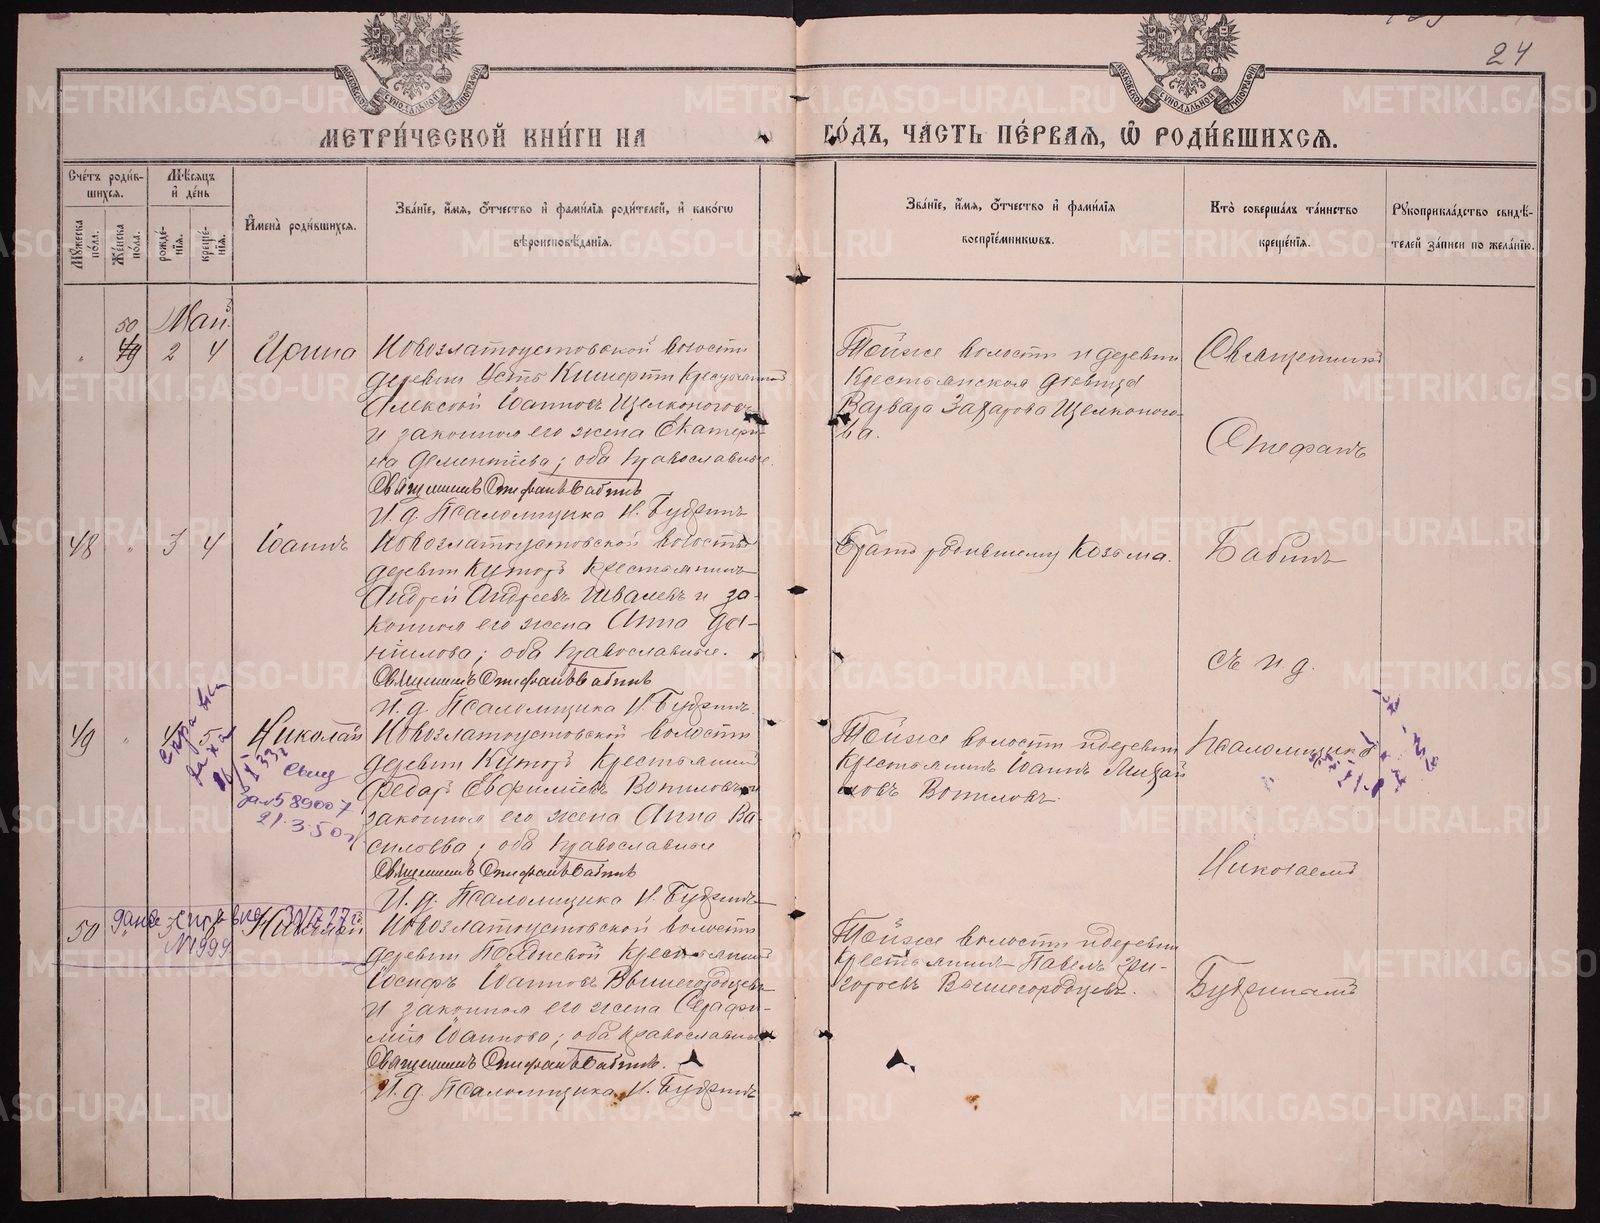 24
МЕТРИ́ЧЕСКОЙ КНИ́ГИ НА ГО́ДЪ, ЧАСТЬ ПЕ́РВАЯ, Ѿ РОДИ́ВШИХСЯ.
Сче́тъ роди́в-
шихся.
Му́жеска
по́ла.
Же́нска
по́ла.
Мѣ́сяцъ
и҆ де́нь
рожде́-
нїя.
креще́-
нїя.
И҆мена̀ роди́вшихся.
Зва́нїе, и҆́мя, ѻ҆́тчество и҆ фами́лїя роди́телей, и҆ како́гѡ
вѣроисповѣ́данїя.
Зва́нїе, и҆́мя, ѻ҆́тчество и҆ фами́лїя
воспрїе́мникѡвъ.
Кто̀ соверша́лъ та́инство
креще́нїя.
Рꙋкоприкла́дство свидѣ́-
телей за́писи по жела́нїю.
Май
50
49 2 4 Ирина
Новозлатоустовской волости
деревни Усть Кишерти крестьянин
Алексѣй Іоанновъ Щелконоговъ
и законная его жена Екатери-
на Дементіева; оба православные.
Священникъ Стефанъ Бабинъ
И. д. Псаломщика Н. Будринъ
Тойже волости и деревни
Крестьянская девица
Варвара Захарова Щелконого-
ва.
Священникъ
Стефанъ
48 " 3 4 Іоаннъ
Новозлатоустовской волости
деревни Крестьянинъ
Андрей Андреевъ Швалевъ и за-
конная его жена Анна Да-
ніилова; оба православные.
Священникъ Стефанъ Бабинъ
И. д. Псаломщика Н. Будринъ
Братъ родившему Козьма.
Бабинъ
съ и д.
49 " 5 Николай
Новозлатоустовской волости
деревни Крестьянинъ
Ѳедоръ Евфиміевъ Вопиловъ и
законная его жена Анна Ва-
сильева; оба православные
Священникъ Стефанъ Бабинъ
И. д. Псаломщика Н. Будринъ
справка
33 г
Свид
589007
21.3.50 г
Тойже волости и деревни
Крестьянинъ Іоаннъ Михай
ловъ Вопиловъ.
Псаломщика
Николаемъ
50 Николай
дана справка
27 г.
N 1999
Новозлатоустовской волости
деревни Крестьянинъ
Іосифъ Іоанновъ Вышегородцевъ
и законная его жена Серафи-
мія Іоаннова; оба православные
Священникъ Стефанъ Бабинъ.
И. д. Псаломщика Н. Будринъ
Тойже волости и деревни
Крестьянинъ Павелъ Гри-
горьевъ Вышегородцевъ.
Будринымъ
METRIKI.GASO-URAL.RU